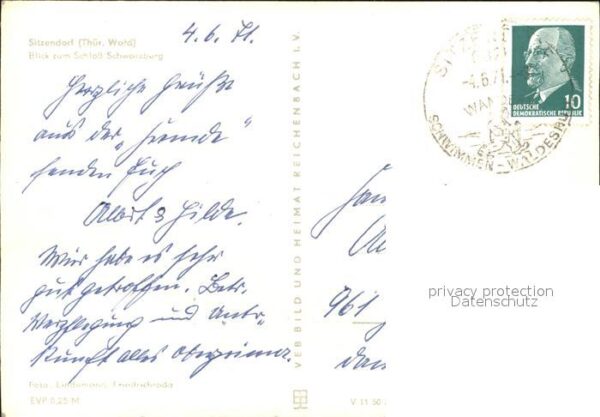 4.6.71.
Sitzendorf (Thür. Wald)
Blick zum Schloß Schwarzburg
Herzliche Grüße
aus der „Fremde"
senden Euch
Albert & Hilde.
Wir haben es sehr
gut getroffen. Betr.
Verpflegung und Unter-
kunft alles Oberprima.
Foto: Lindemann, Friedrichroda
EVP 0,25 M
VEB BILD UND HEIMAT REICHENBACH I. V.
V 11 50
Fam
961
-4.6.71.
WAN
SCHWIMMEN - WALDESRU
DEUTSCHE
DEMOKRATISCHE REPUBLIK
10
privacy protection
Datenschutz